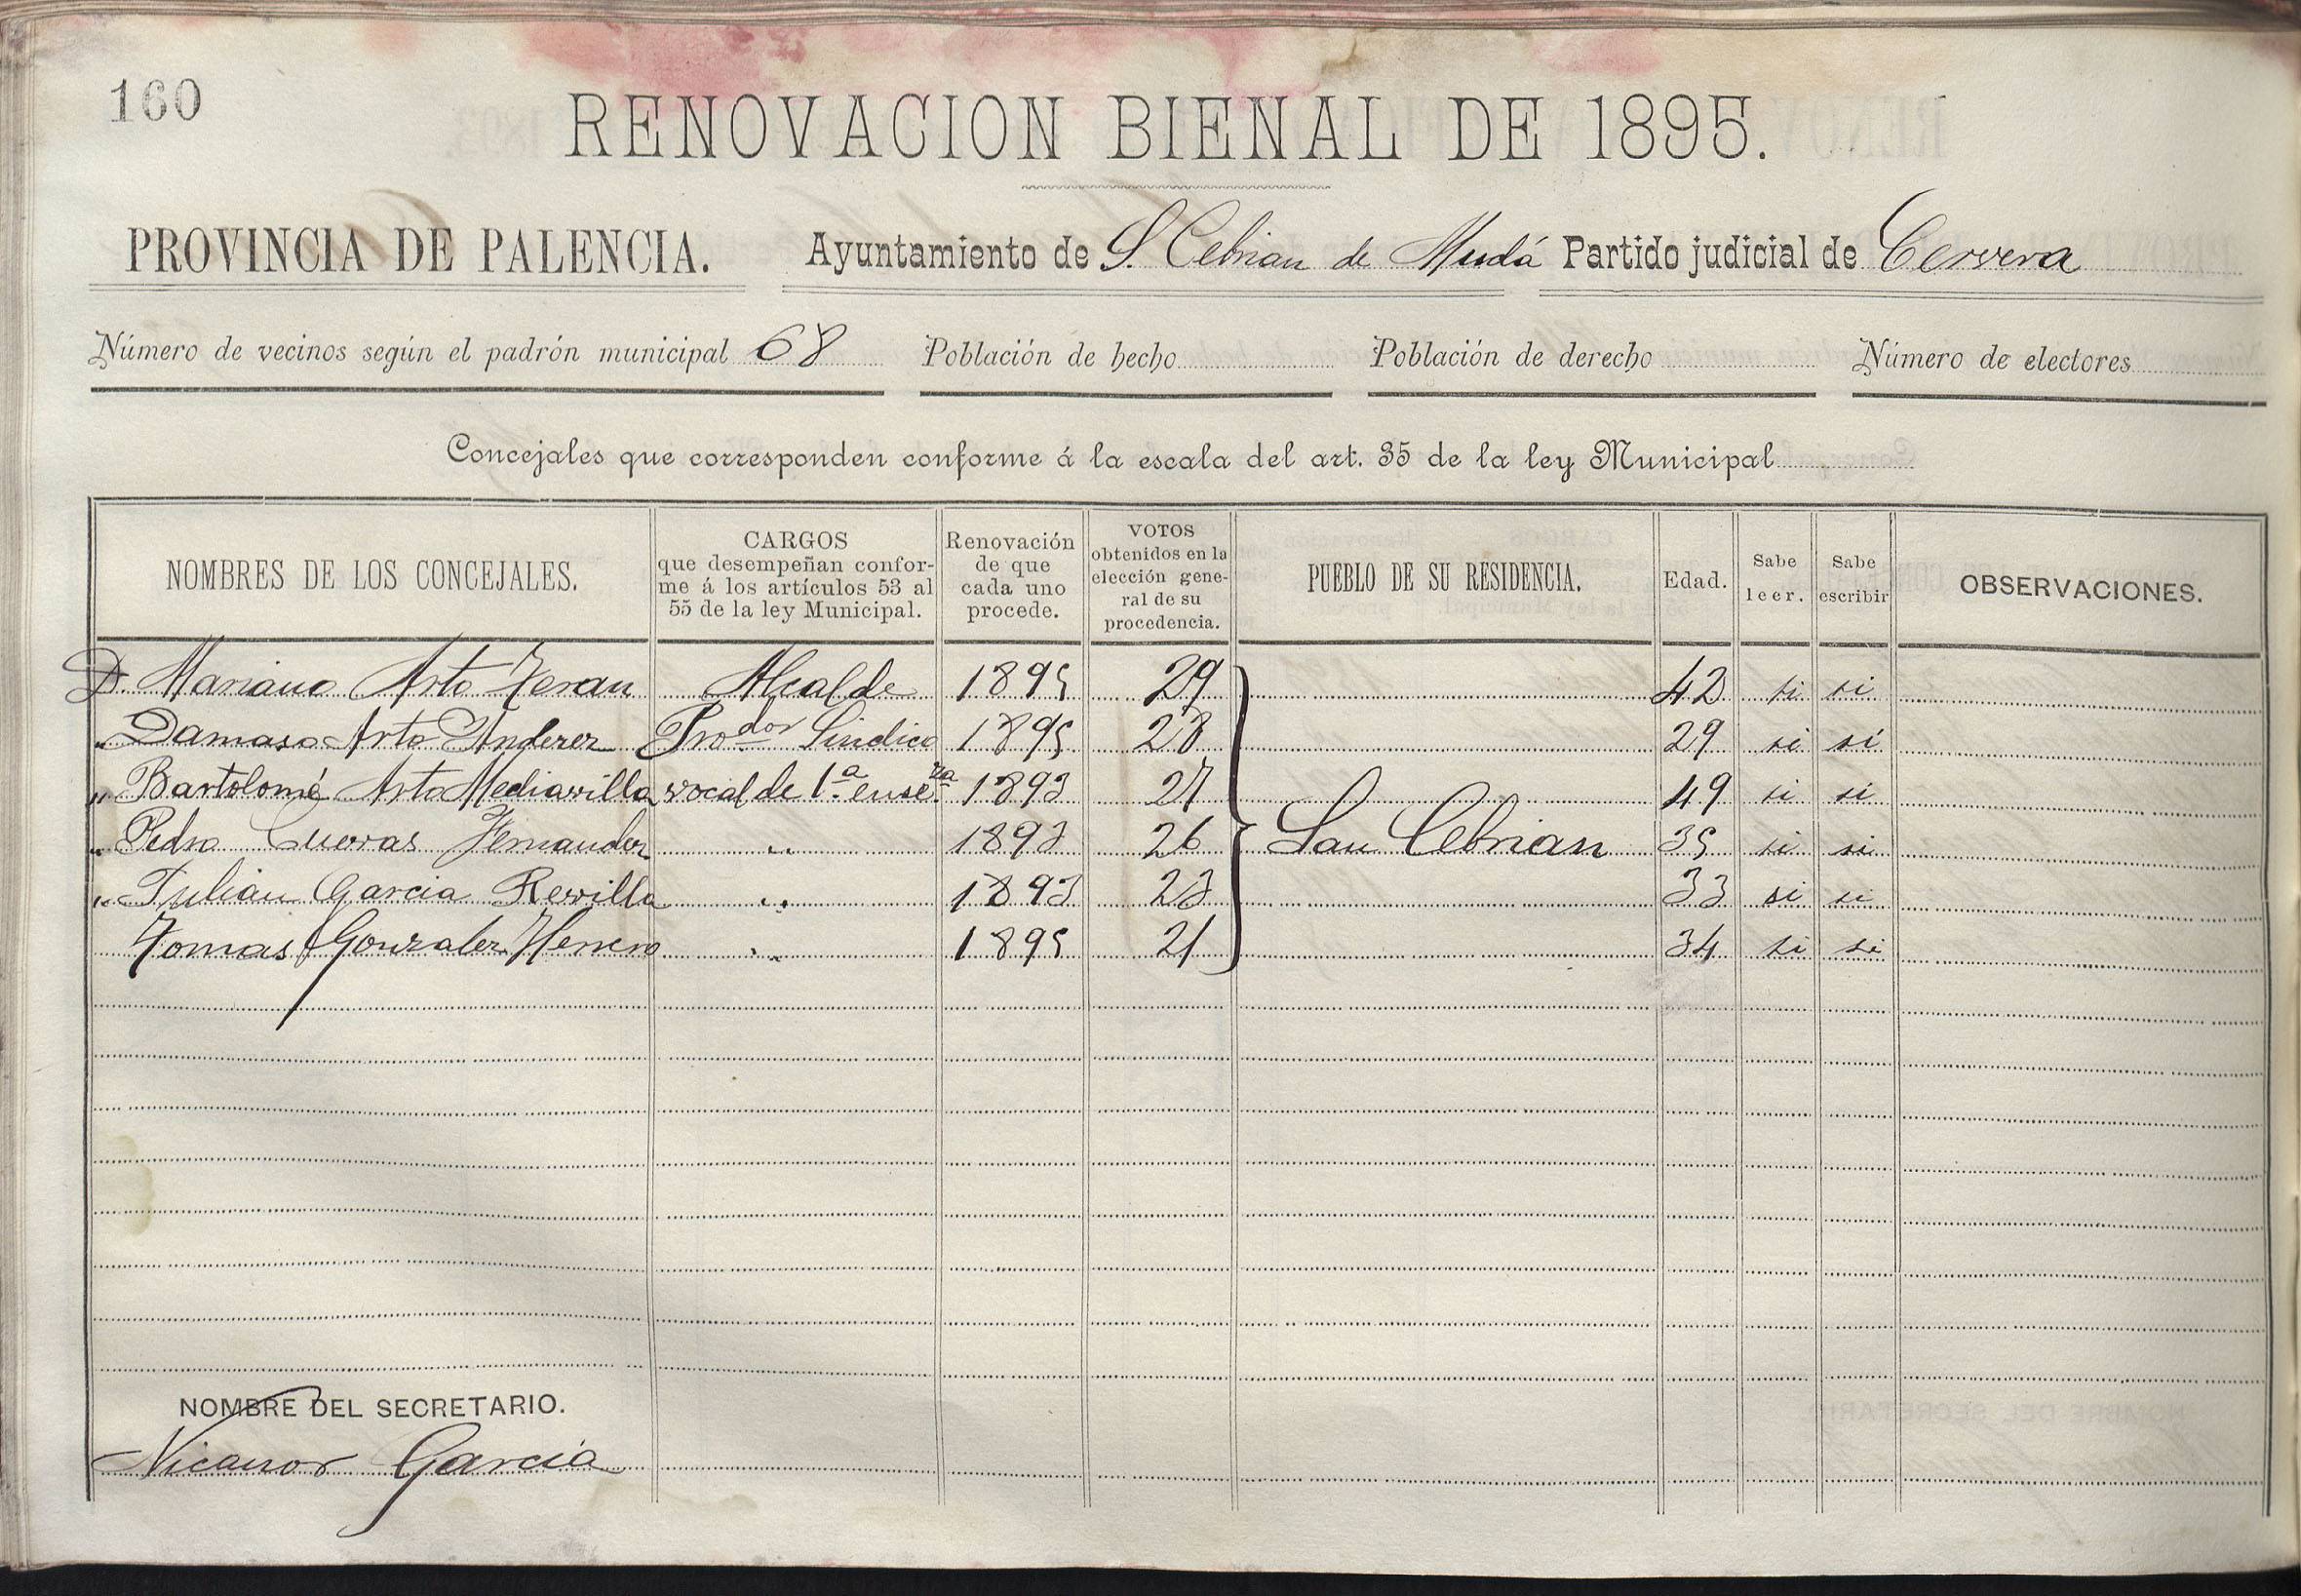 160
RENOVACION BIENAL DE 1895.
PROVINCIA DE PALENCIA. Ayuntamiento de S. Cebrian de Mudá Partido judicial de Cervera
Número de vecinos según el padrón municipal 68 Población de hecho Población de derecho Número de electores
Concejales que corresponden conforme á la escala del art. 35 de la ley Municipal
NOMBRES DE LOS CONCEJALES.
CARGOS
que desempeñan confor-
me á los artículos 53 al
55 de la ley Municipal.
Renovación
de que
cada uno
procede.
VOTOS
obtenidos en la
elección gene-
ral de su
procedencia.
PUEBLO DE SU RESIDENCIA.
Edad.
Sabe
leer.
Sabe
escribir
OBSERVACIONES.
D. Mariano Arto Teran Alcalde 1895 29 42 si si
„ Damaso Arto Anderez Pro.dor Sindico 1895 28 29 si si
„ Bartolomé Arto Mediavilla vocal de 1.a ense.za 1893 27 49 si si
„ Pedro Cuevas Fernandez „ 1893 26 San Cebrian 35 si si
„ Julian Garcia Revilla „ 1893 23 33 si si
Tomas Gonzalez Herrero „ 1895 21 34 si si
NOMBRE DEL SECRETARIO.
Nicanor García